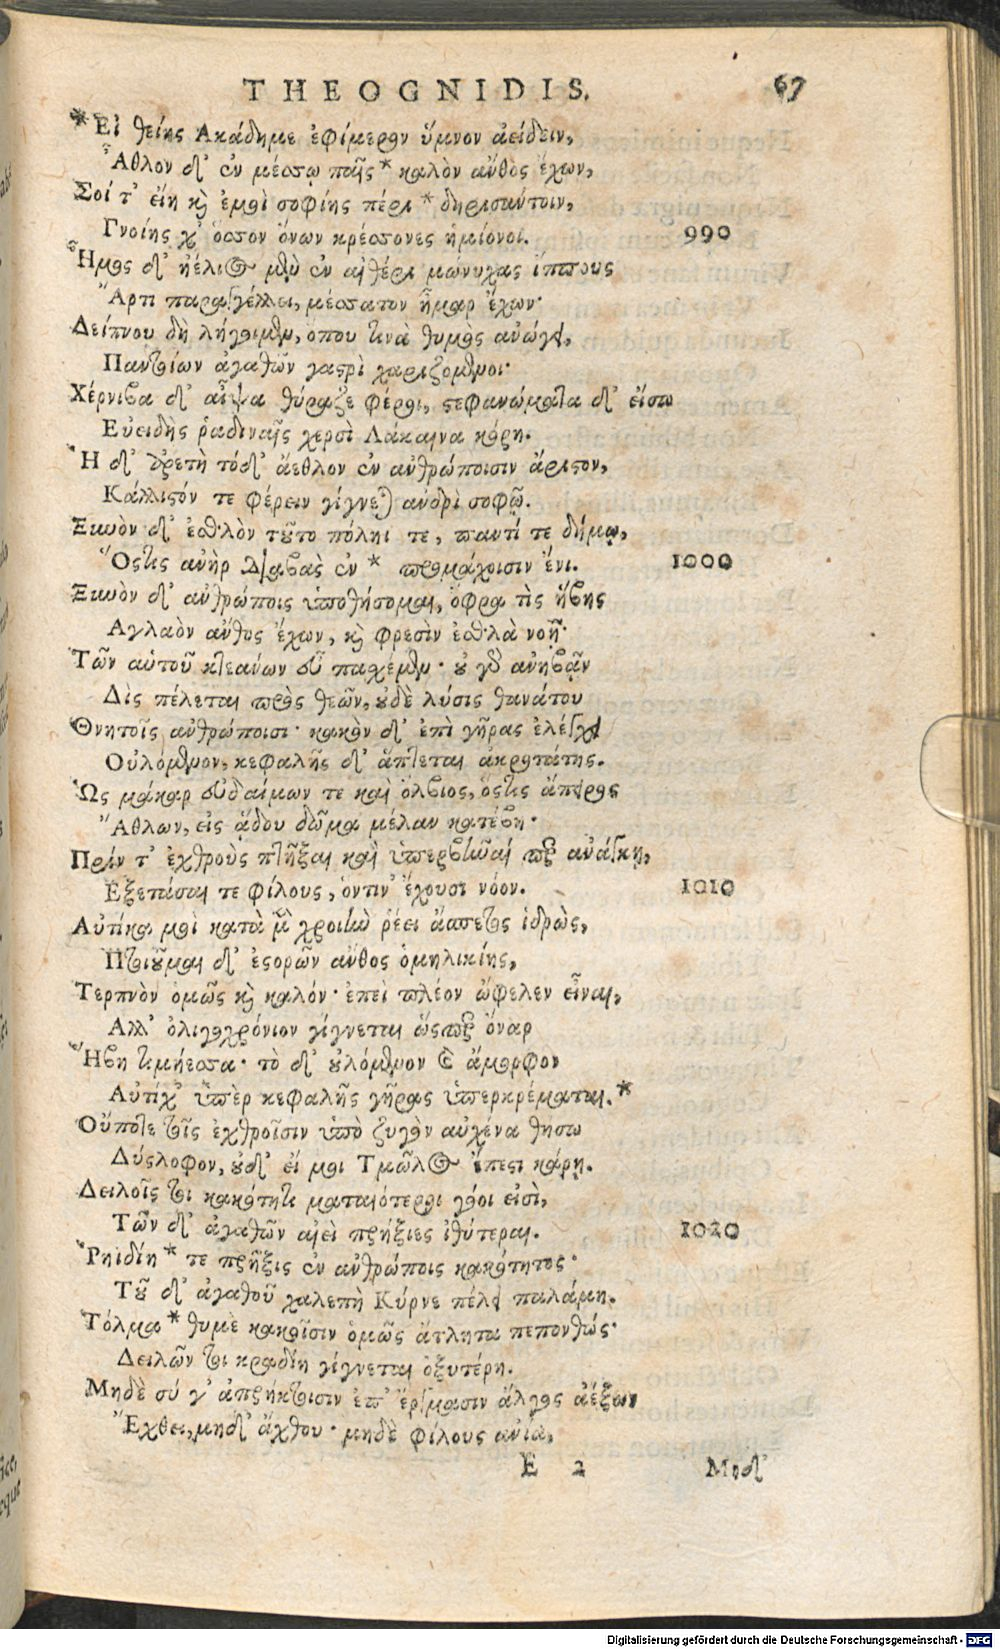 THEOGNIDIS. 67
*Εἰ θείης Ακάδημε ἐφίμερον ὕμνον ἀείδειν,
Ἆθλον δ' ἐν μέσσῳ παῖς * καλὸν ἄνθος ἔχων,
Σοί τ' εἴη καὶ ἐμοὶ σοφίης πέρι * δηρισάντοιν,
Γνοίης χ' ὅσσον ὄνων κρέσσονες ἡμίονοι. 990
Ἦμος δ' ἠέλιος μὲν ἐν αἰθέρι μώνυχας ἵππους
Ἄρτι παραγγέλλει, μέσσατον ἦμαρ ἔχων·
Δείπνου δὴ λήγοιμεν, ὅπου τινὰ θυμὸς ἀνώγει,
Παντοίων ἀγαθῶν γαστρὶ χαριζόμενοι·
Χέρνιβα δ' αἶψα θύραζε φέροι, στεφανώματα δ' εἴσω
Εὐειδὴς ῥαδιναῖς χερσὶ Λάκαινα κόρη.
Ἡ δ' ἀρετὴ τόδ' ἄεθλον ἐν ἀνθρώποισιν ἄριστον,
Κάλλιστόν τε φέρειν γίγνεται ἀνδρὶ σοφῷ.
Ξυνὸν δ' ἐσθλὸν τοῦτο πόληί τε, παντί τε δήμῳ,
Ὅστις ἀνὴρ διαβὰς ἐν * προμάχοισιν ἔνι. 1000
Ξυνὸν δ' ἀνθρώποις ὑποθήσομαι, ὄφρα τὶς ἥβης
Αγλαὸν ἄνθος ἔχων, καὶ φρεσὶν ἐσθλὰ νοῇ·
Τῶν αὑτοῦ κτεάνων εὖ πασχέμεν· οὐ γὰρ ἀνηβᾷν
Δὶς πέλεται πρὸς θεῶν, οὐδὲ λύσις θανάτου
Θνητοῖς ἀνθρώποισι· κακὸν δ' ἐπὶ γῆρας ἐλέγχει
Οὐλόμενον, κεφαλῆς δ' ἅπτεται ἀκροτάτης.
Ὡς μάκαρ εὐδαίμων τε καὶ ὄλβιος, ὅστις ἄπειρος
Ἄθλων, εἰς ᾅδου δῶμα μέλαν κατέβη·
Πρίν τ' ἐχθροὺς πτῆξαι καὶ ὑπερβῆναί περ ἀνάγκῃ,
Εξετάσαι τε φίλους, ὅντιν' ἔχουσι νόον. 1010
Αὐτίκα μοι κατὰ μὲν χροιὴν ῥέει ἄσπετος ἱδρὼς,
Πτοιοῦμαι δ' ἐσορῶν ἄνθος ὁμηλικίης,
Τερπνὸν ὁμῶς καὶ καλόν· ἐπεὶ πλέον ὤφελεν εἶναι,
Αλλ' ὀλιγοχρόνιον γίγνεται ὥσπερ ὄναρ
Ἥβη τιμήεσσα· τὸ δ' οὐλόμενον καὶ ἄμορφον
Αὐτίχ' ὑπὲρ κεφαλῆς γῆρας ὑπερκρέμαται.*
Οὔποτε τοῖς ἐχθροῖσιν ὑπὸ ζυγὸν αὐχένα θήσω
Δύσλοφον, οὐδ' εἴ μοι Τμῶλος ἔπεστι κάρῃ.
Δειλοῖς τοι κακότητι ματαιότεροι νόοι εἰσὶ,
Τῶν δ' ἀγαθῶν αἰεὶ πρήξιες ἰθύτεραι. 1020
Ῥηϊδίη * τε πρῆξις ἐν ἀνθρώποις κακότητος·
Τοῦ δ' ἀγαθοῦ χαλεπὴ Κύρνε πέλει παλάμη.
Τόλμα * θυμὲ κακοῖσιν ὁμῶς ἄτλητα πεπονθώς·
Δειλῶν τοι κραδίη γίγνεται ὀξυτέρη.
Μηδὲ σύ γ' ἀπρήκτοισιν ἐπ' ἔργμασιν ἄλγος ἀέξων
Ἔχθει, μηδ' ἄχθου· μηδὲ φίλους ἀνία,
E 2 Μηδ'
Digitalisierung gefördert durch die Deutsche Forschungsgemeinschaft - DFG